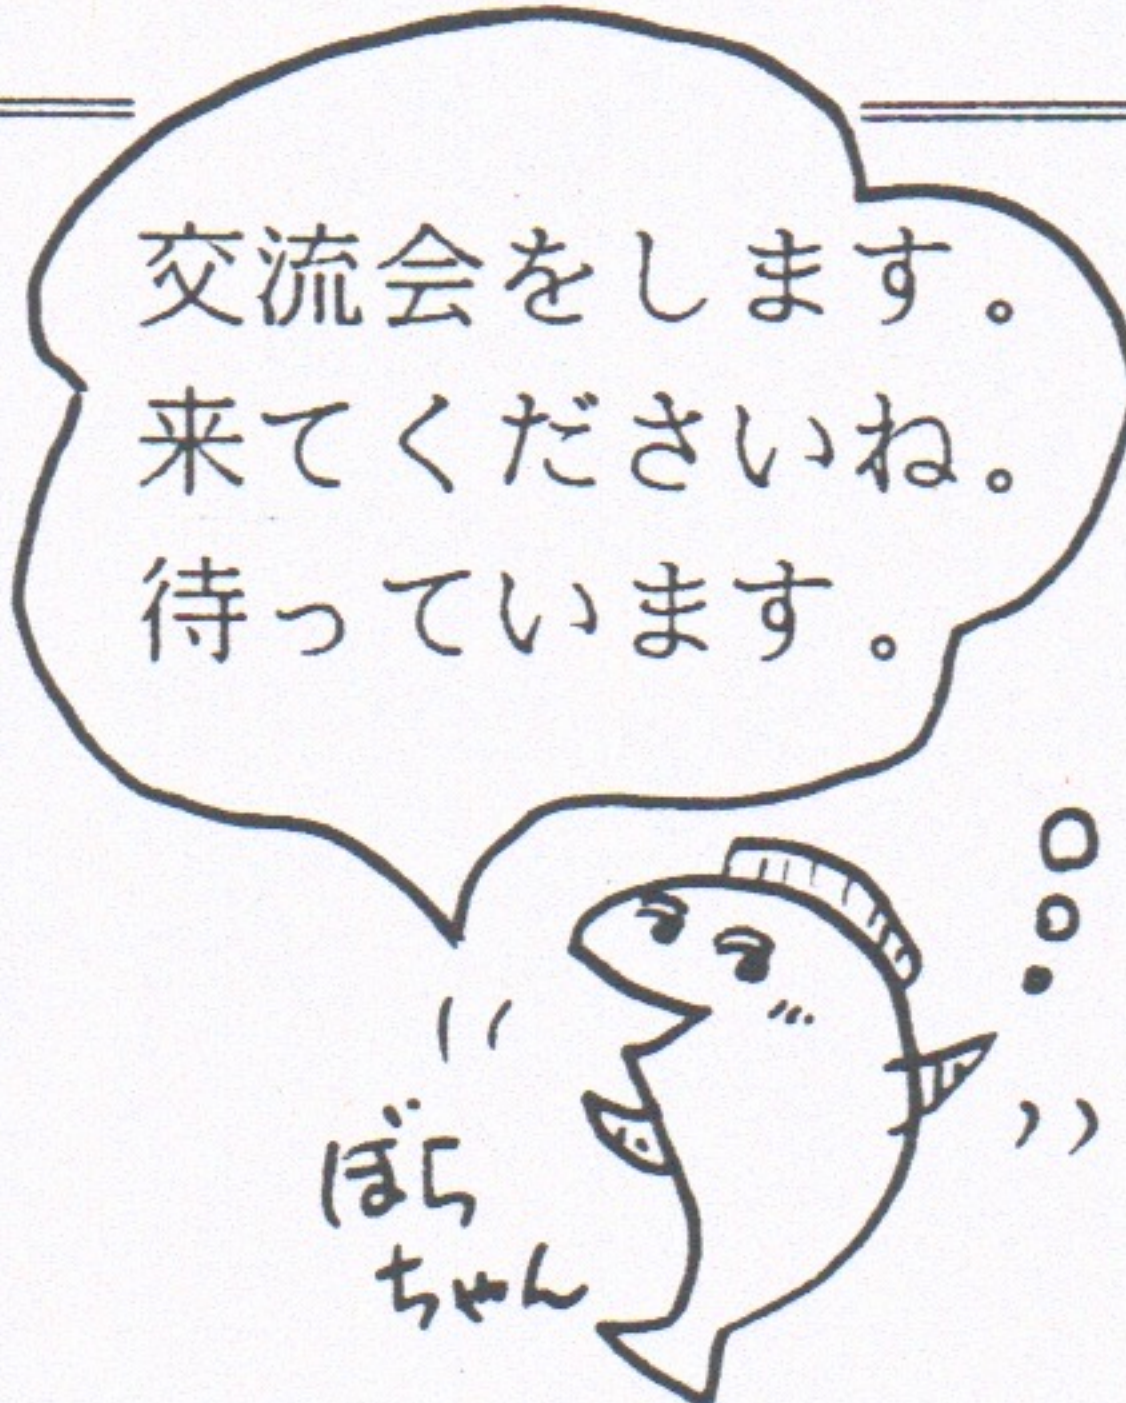 交流会をします。
来てくださいね。
待っています。
ぼら
ちゃん